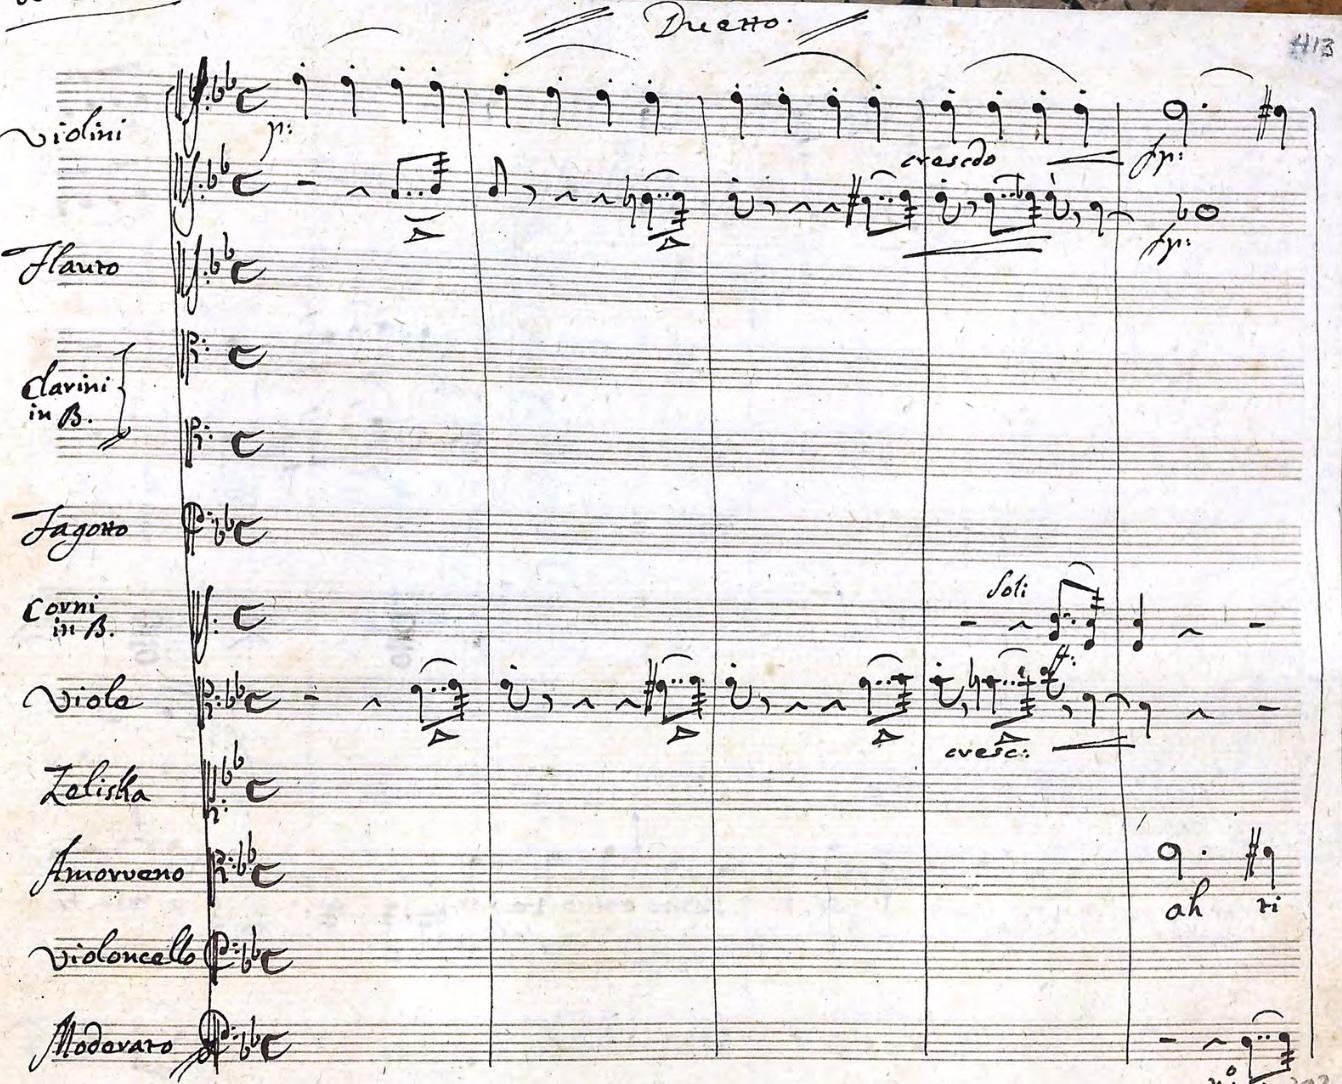 Duetto.
413
Violini
p:
crescdo
fp:
fp:
Flauto
Clarini
in B.
Fagotto
Corni
in B.
Soli
f:
Viole
cresc:
Zeliska
Amorveno
ah ri
Violoncello
Moderato